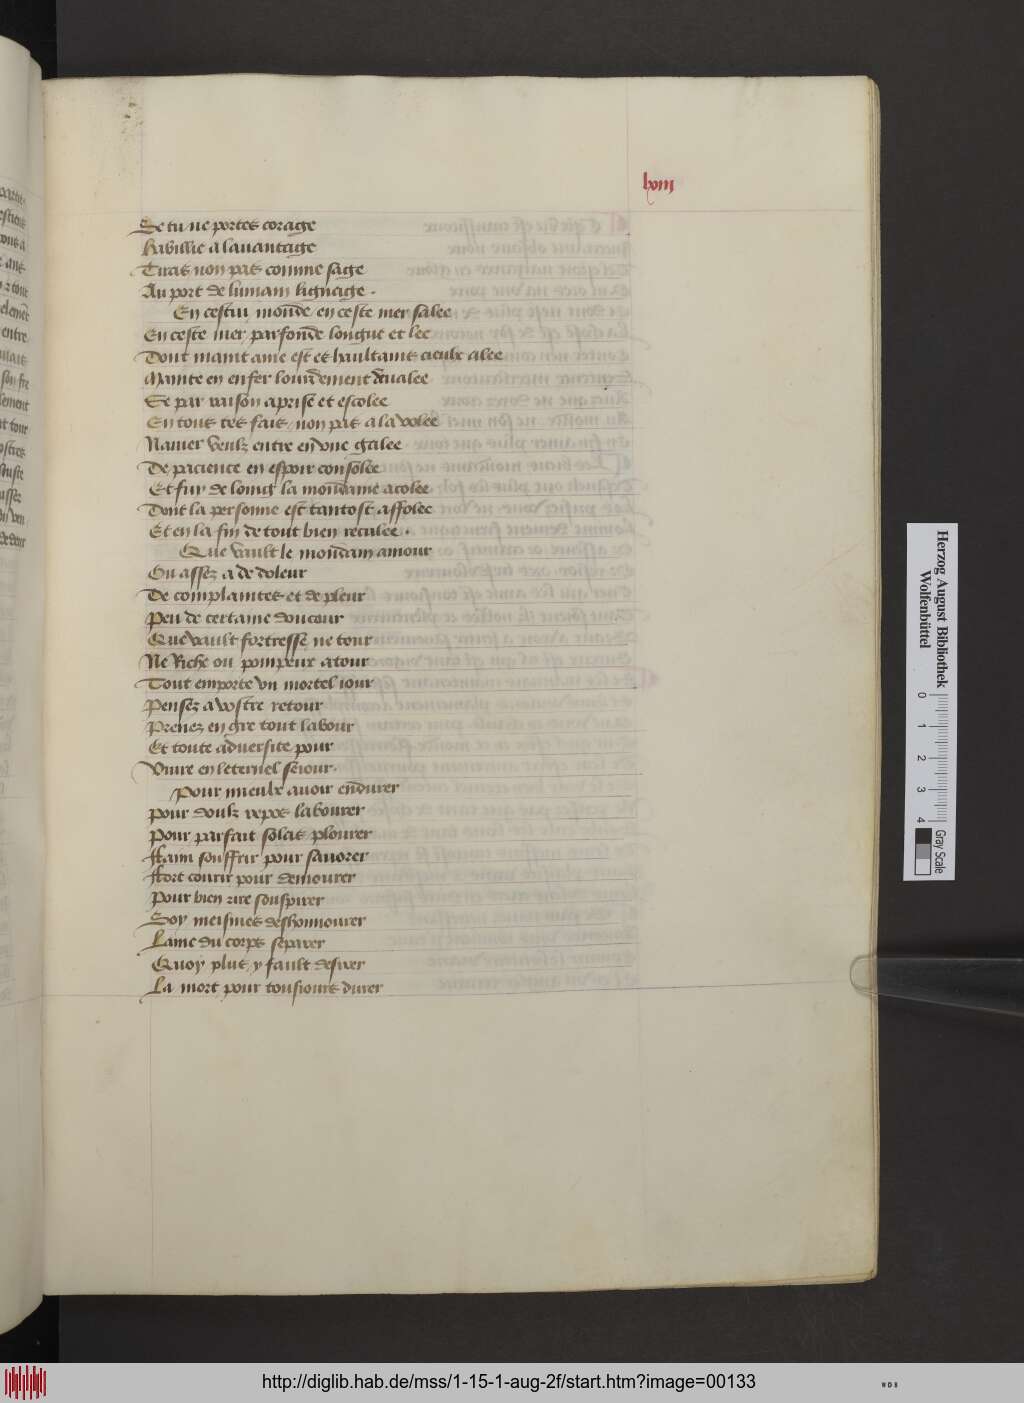 lxiiij
Se tu ne portes corage
Habillie a lauantage
Tiras non pas comme sage
Au port de lumain lignaige.
En cestui monde en ceste mer salee
En ceste mer parfonde longue et lee
Dont maint ame est es haultains cieulx alee
Mainte en enfer lourdement deualee
Se par raison aprise et escolee
En tous tes fais non pas a la volee
Nauier veulz entre en vne galee
De pacience en espoir consolee
Et fui de loing la mondaine acolee
Dont la personne est tantost affolee
Et en la fin de tout bien reculee.
Que vault le mondain amour
Ou assez a de doleur
De complaintes et de pleur
Peu de certaine doucour
Que vault fortresse ne tour
Ne Riche ou pompeux atour
Tout emporte vn mortel iour
Pensez a vostre retour
Prenez en gre tout labour
Et toute aduersite pour
Viure en leternel seiour.
Pour mieulx auoir endurer
Pour doulz repos labourer
Pour parfait solas plourer
ffaim souffrir pour sauorer
ffort courir pour demourer
Pour bien rire souspirer
Soy meismes deshonnourer
Lame du corps separer
Quoy plus y fault desirer
La mort pour tousiours durer
Herzog August Bibliothek
Wolfenbüttel
0 1 2 3 4
Gray Scale
http://diglib.hab.de/mss/1-15-1-aug-2f/start.htm?image=00133
WDB